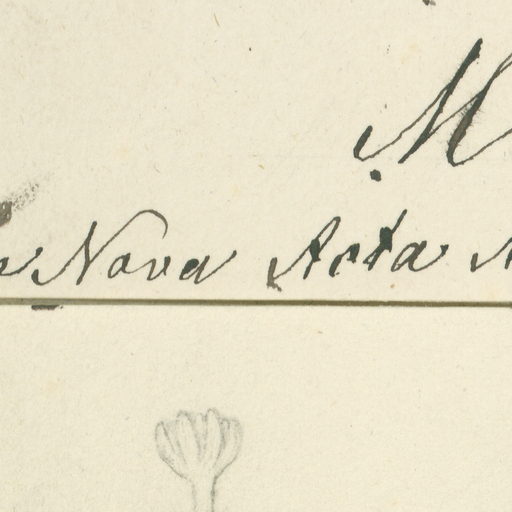 M
Nova Acta